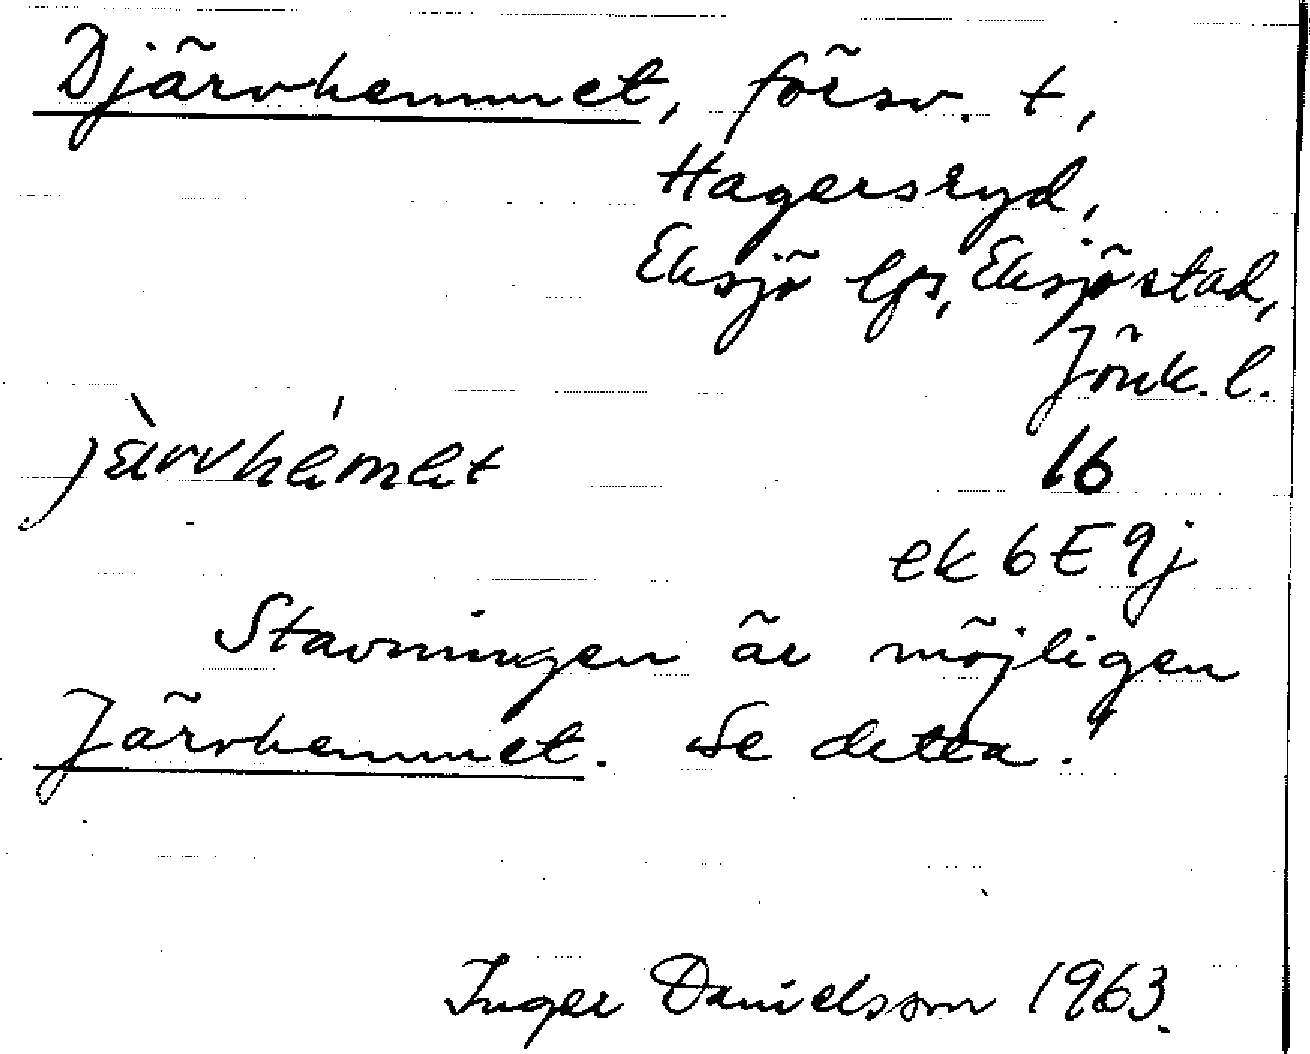 Djärvhemmet, försv. t,
Hagersryd,
Eksjö lfs, Eksjö stad,
Jönk. l.
16
ek 6E9j
Stavningen är möjligen
Järvhemmet. Se detta!
Inger Danielsson 1963.